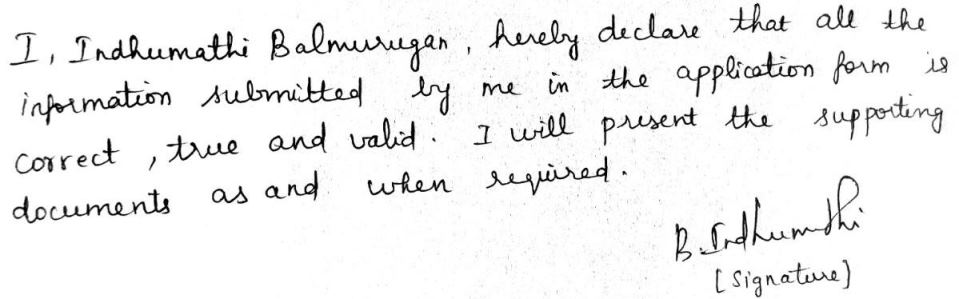 I, Indhumathi Balmurugan, hereby declare that all the
information submitted by me in the application form is
correct, true and valid. I will present the supporting
documents as and when required.
B. Indhumathi
[Signature]